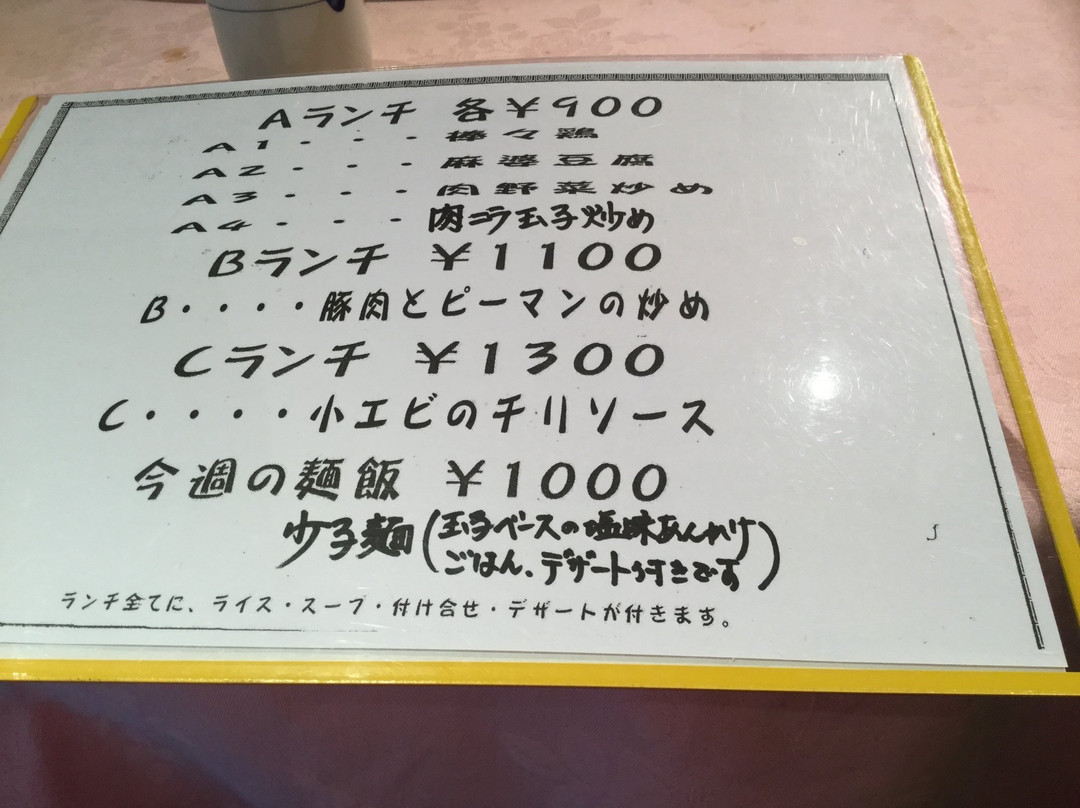 Aランチ 各¥900
A1・・・棒々鶏
A2・・・麻婆豆腐
A3・・・肉野菜炒め
A4・・・肉ニラ玉子炒め
Bランチ ¥1100
B・・・・豚肉とピーマンの炒め
Cランチ ¥1300
C・・・・小エビのチリソース
今週の麺飯 ¥1000
少子麺(玉子ベースの塩味あんかけ
ごはん、デザート付きです)
ランチ全てに、ライス・スープ・付け合せ・デザートが付きます。